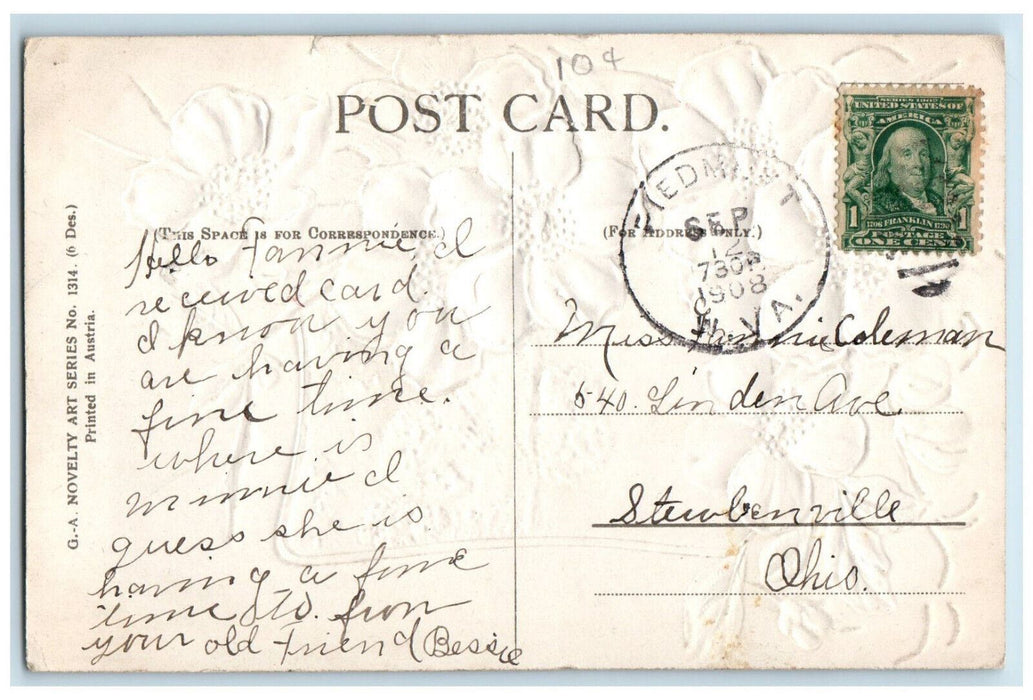 10¢
POST CARD.
(THIS SPACE IS FOR CORRESPONDENCE.)
(FOR ADDRESS ONLY.)
G.-A. NOVELTY ART SERIES No. 1314. (6 Des.)
Printed in Austria.
SERIES 1902
UNITED STATES OF
AMERICA
1 1706 FRANKLIN 1790 1
POSTAGE
ONE CENT
PIEDMONT
SEP
12
730P
1908
W. VA.
Hello Fannie, I
received card.
I know you
are having a
fine time.
where is
Minnie I
guess she is
having a fine
time from
your old friend Bessie
Miss Fannie Coleman
540. Linden Ave.
Steubenville
Ohio.